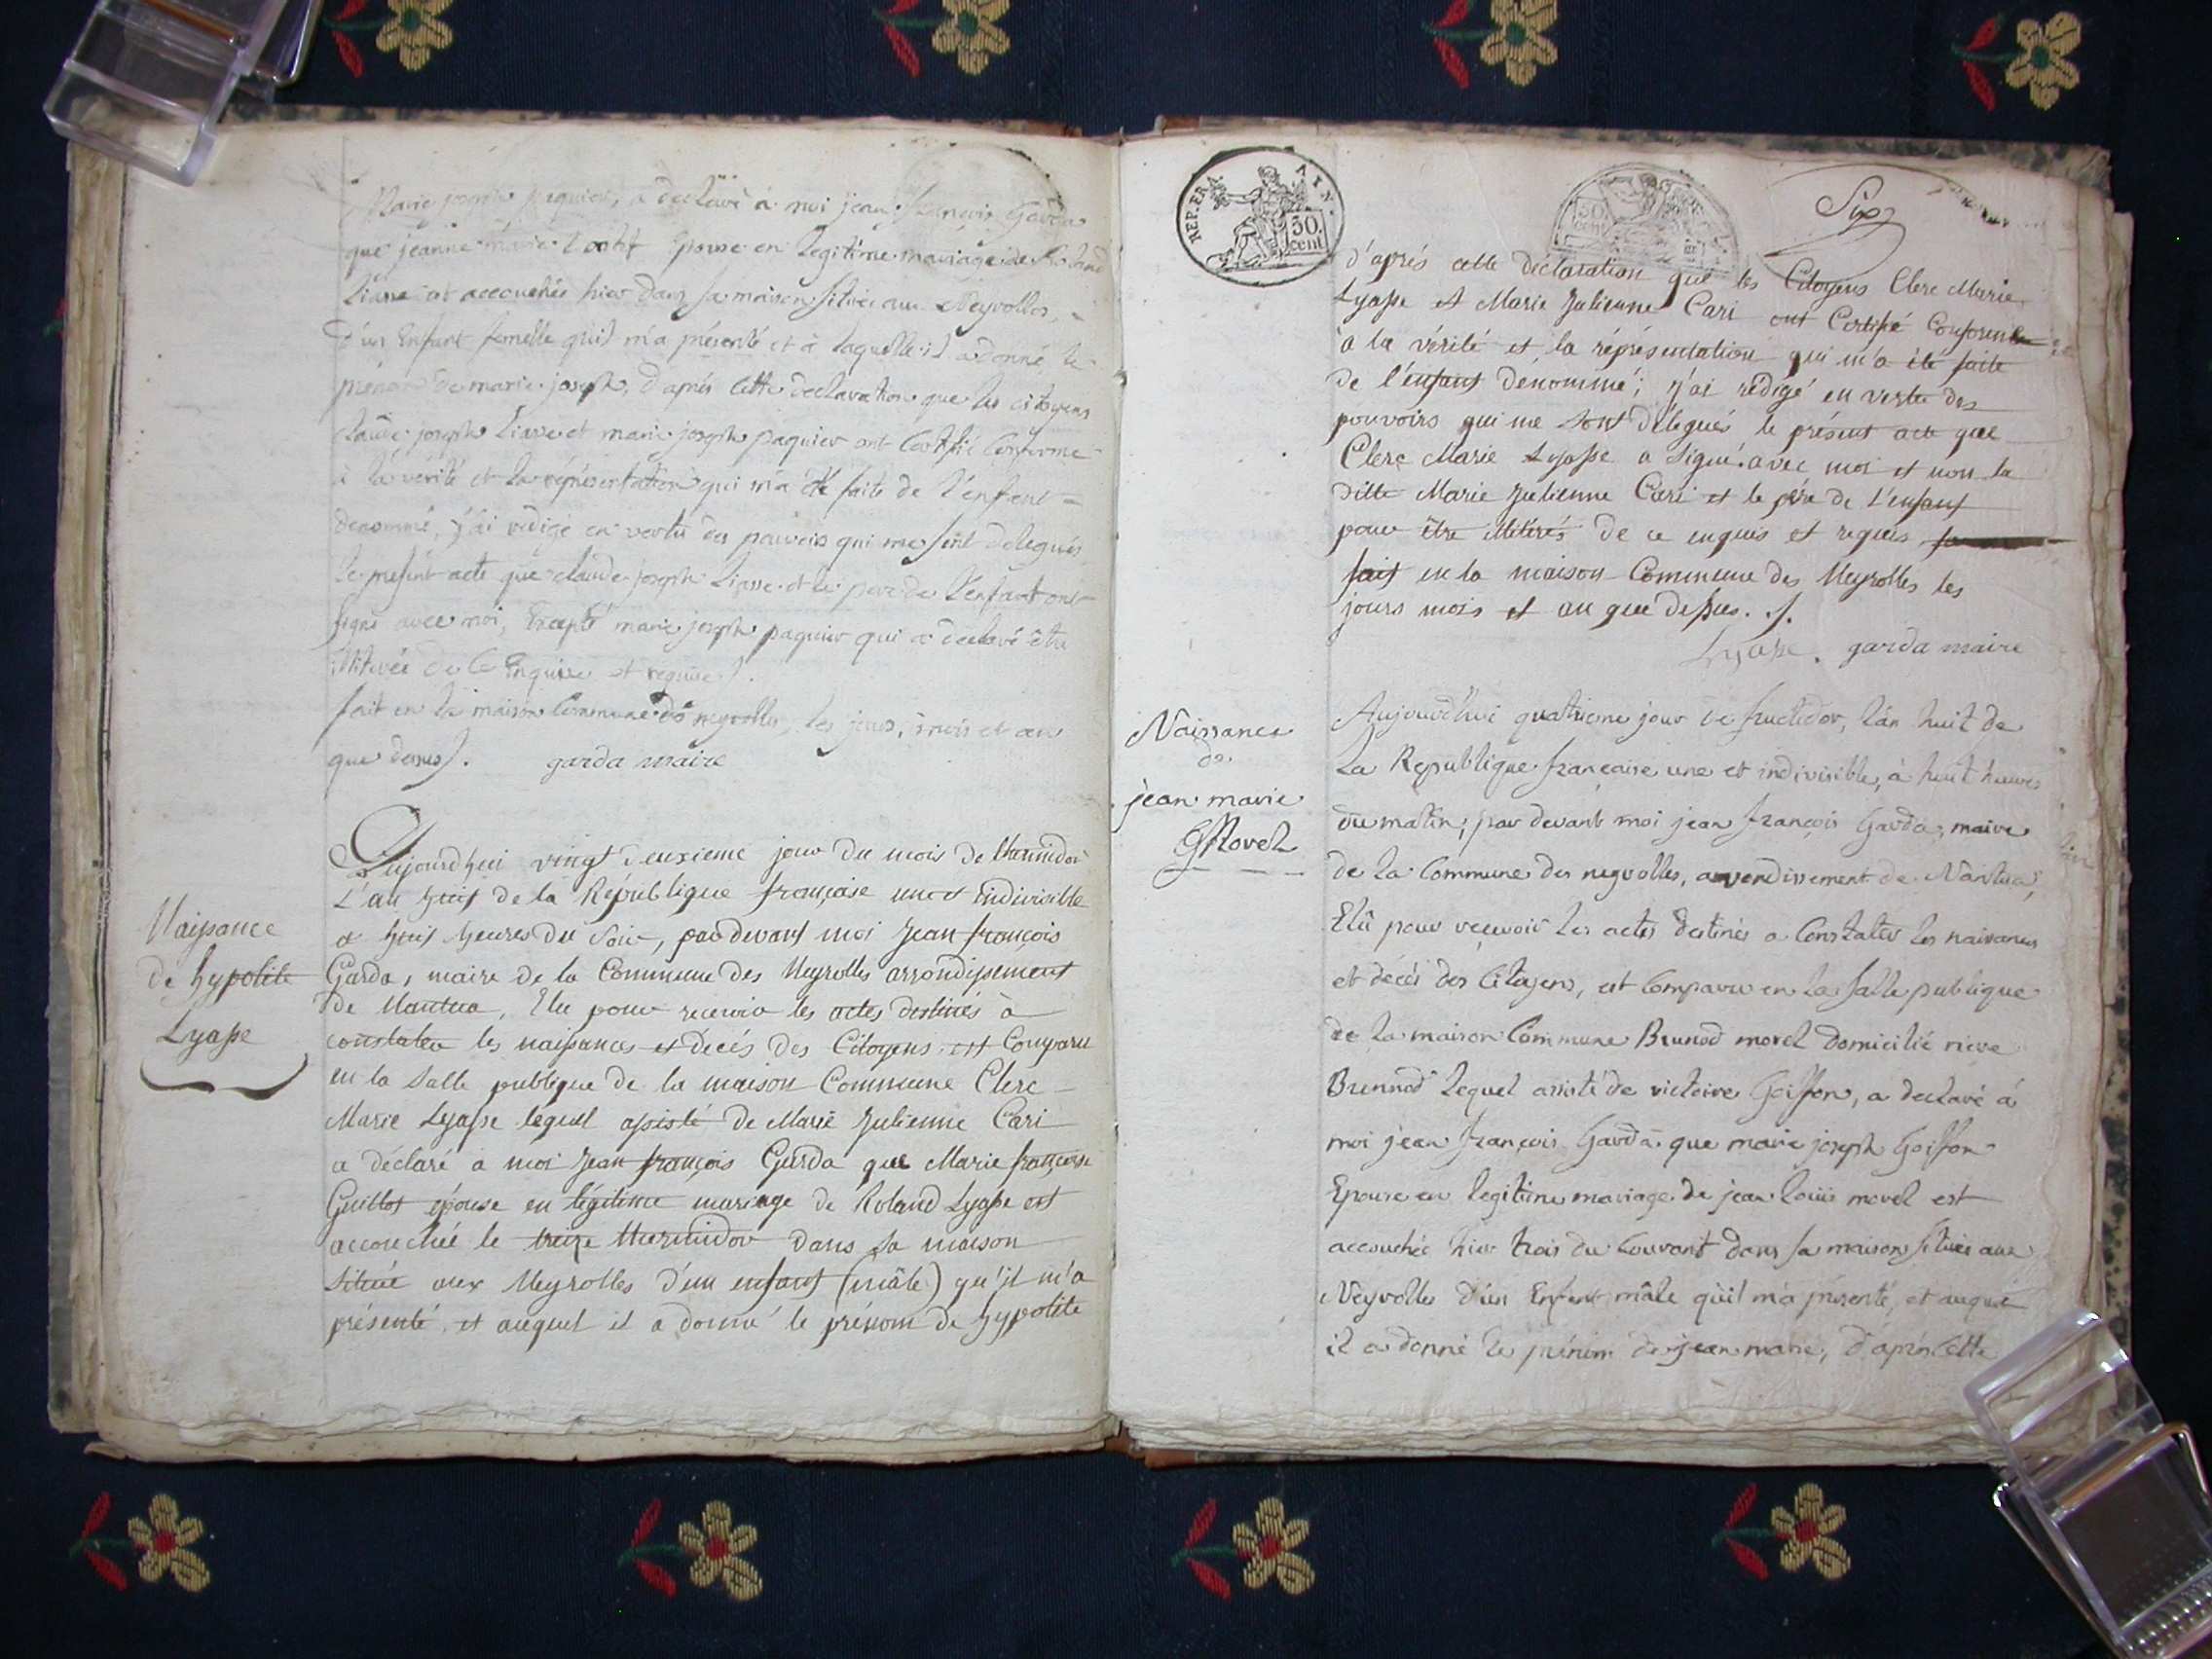 Marie joseph paquier, a declaré à moi jean françois Garda
que jeanne marie Epouse en legitime mariage de Roland
Liasse est accouchée hier dans sa maison située aux Neyrolles,
d'un Enfant femelle quil m'a présenté et à laquelle il a donné le
prénom de marie joseph, d'après cette declaration que les citoyens
claude joseph Liasse et marie joseph paquier ont Certifié Conforme
à la vérité et la représentation qui m'a été faite de l'enfant
denommé, j'ai rédigé en vertu des pouvoirs qui me sont delegués
le present acte que claude joseph Liasse et le pere de l'enfant ont
signé avec moi, Excepté marie joseph paquier qui a declaré être
illiterée de ce Enquise et requise ∫.
fait en la maison Commune des neyrolles, les jour, mois et an
que dessus ∫. garda maire
Naissance
de hypolite
Lyasse
Aujourd'hui vingt deuxieme jour du mois de thermidor
L'an huit de la République française une et Indivisible
a huit heures du Soir, par devant moi Jean françois
Garda, maire de la Commune des Neyrolles arrondissement
de Nantua, Elu pour recevoir les actes destinés à
constater les naissances et décés des Citoyens est Comparu
en la Salle publique de la maison Commune Clerc
Marie Lyasse lequel assisté de Marie Julienne Cari
a déclaré à moi Jean françois Garda que Marie françoise
Guillot épouse en légitime mariage de Roland Lyasse est
accouchée le treize thermidor dans sa maison
située aux Neyrolles d'un enfant (mâle) qu'il m'a
présenté et auquel il a donné le prénom de hypolite
REP. FRA. AIN.
30.
cent
Six
d'après cette déclaration que les Citoyens Clerc Marie
Lyasse et Marie Julienne Cari ont Certifié Conforme
à la vérité et la réprésentation qui m'a été faite
de l'enfant denommé; j'ai rédigé en vertu des
pouvoirs qui me sont délegués le présent acte que
Clerc Marie Lyasse a signé avec moi et non la
ditte Marie Julienne Cari et le père de l'enfant
pour être illitérés de ce enquis et requis
fait en la maison Commune des Neyrolles les
jours mois et an que dessus. ∫.
Lyasse. garda maire
Naissance
de
jean marie
Morel
Aujourd'hui quatrieme jour de fructidor, l'an huit de
La Republique française une et indivisible, à huit heures
du matin, par devant moi jean françois Garda, maire
de la Commune des neyrolles, arrondissement de Nantua,
Elû pour reçevoir les actes destinés a Constater les naissances
et décés des Citoyens, est Comparu en la salle publique
de la maison Commune Brunod morel Domicilié riere
Brunnod lequel assisté de victoire Goiffon, a declaré à
moi jean françois Garda que marie joseph Goiffon
Epouse en legitime mariage de jean louis morel est
accouchée hier trois du Courant dans sa maison située aux
Neyrolles d'un Enfant mâle qu'il m'a présenté, et auquel
il a donné le prénom de jean marie, d'après Cette